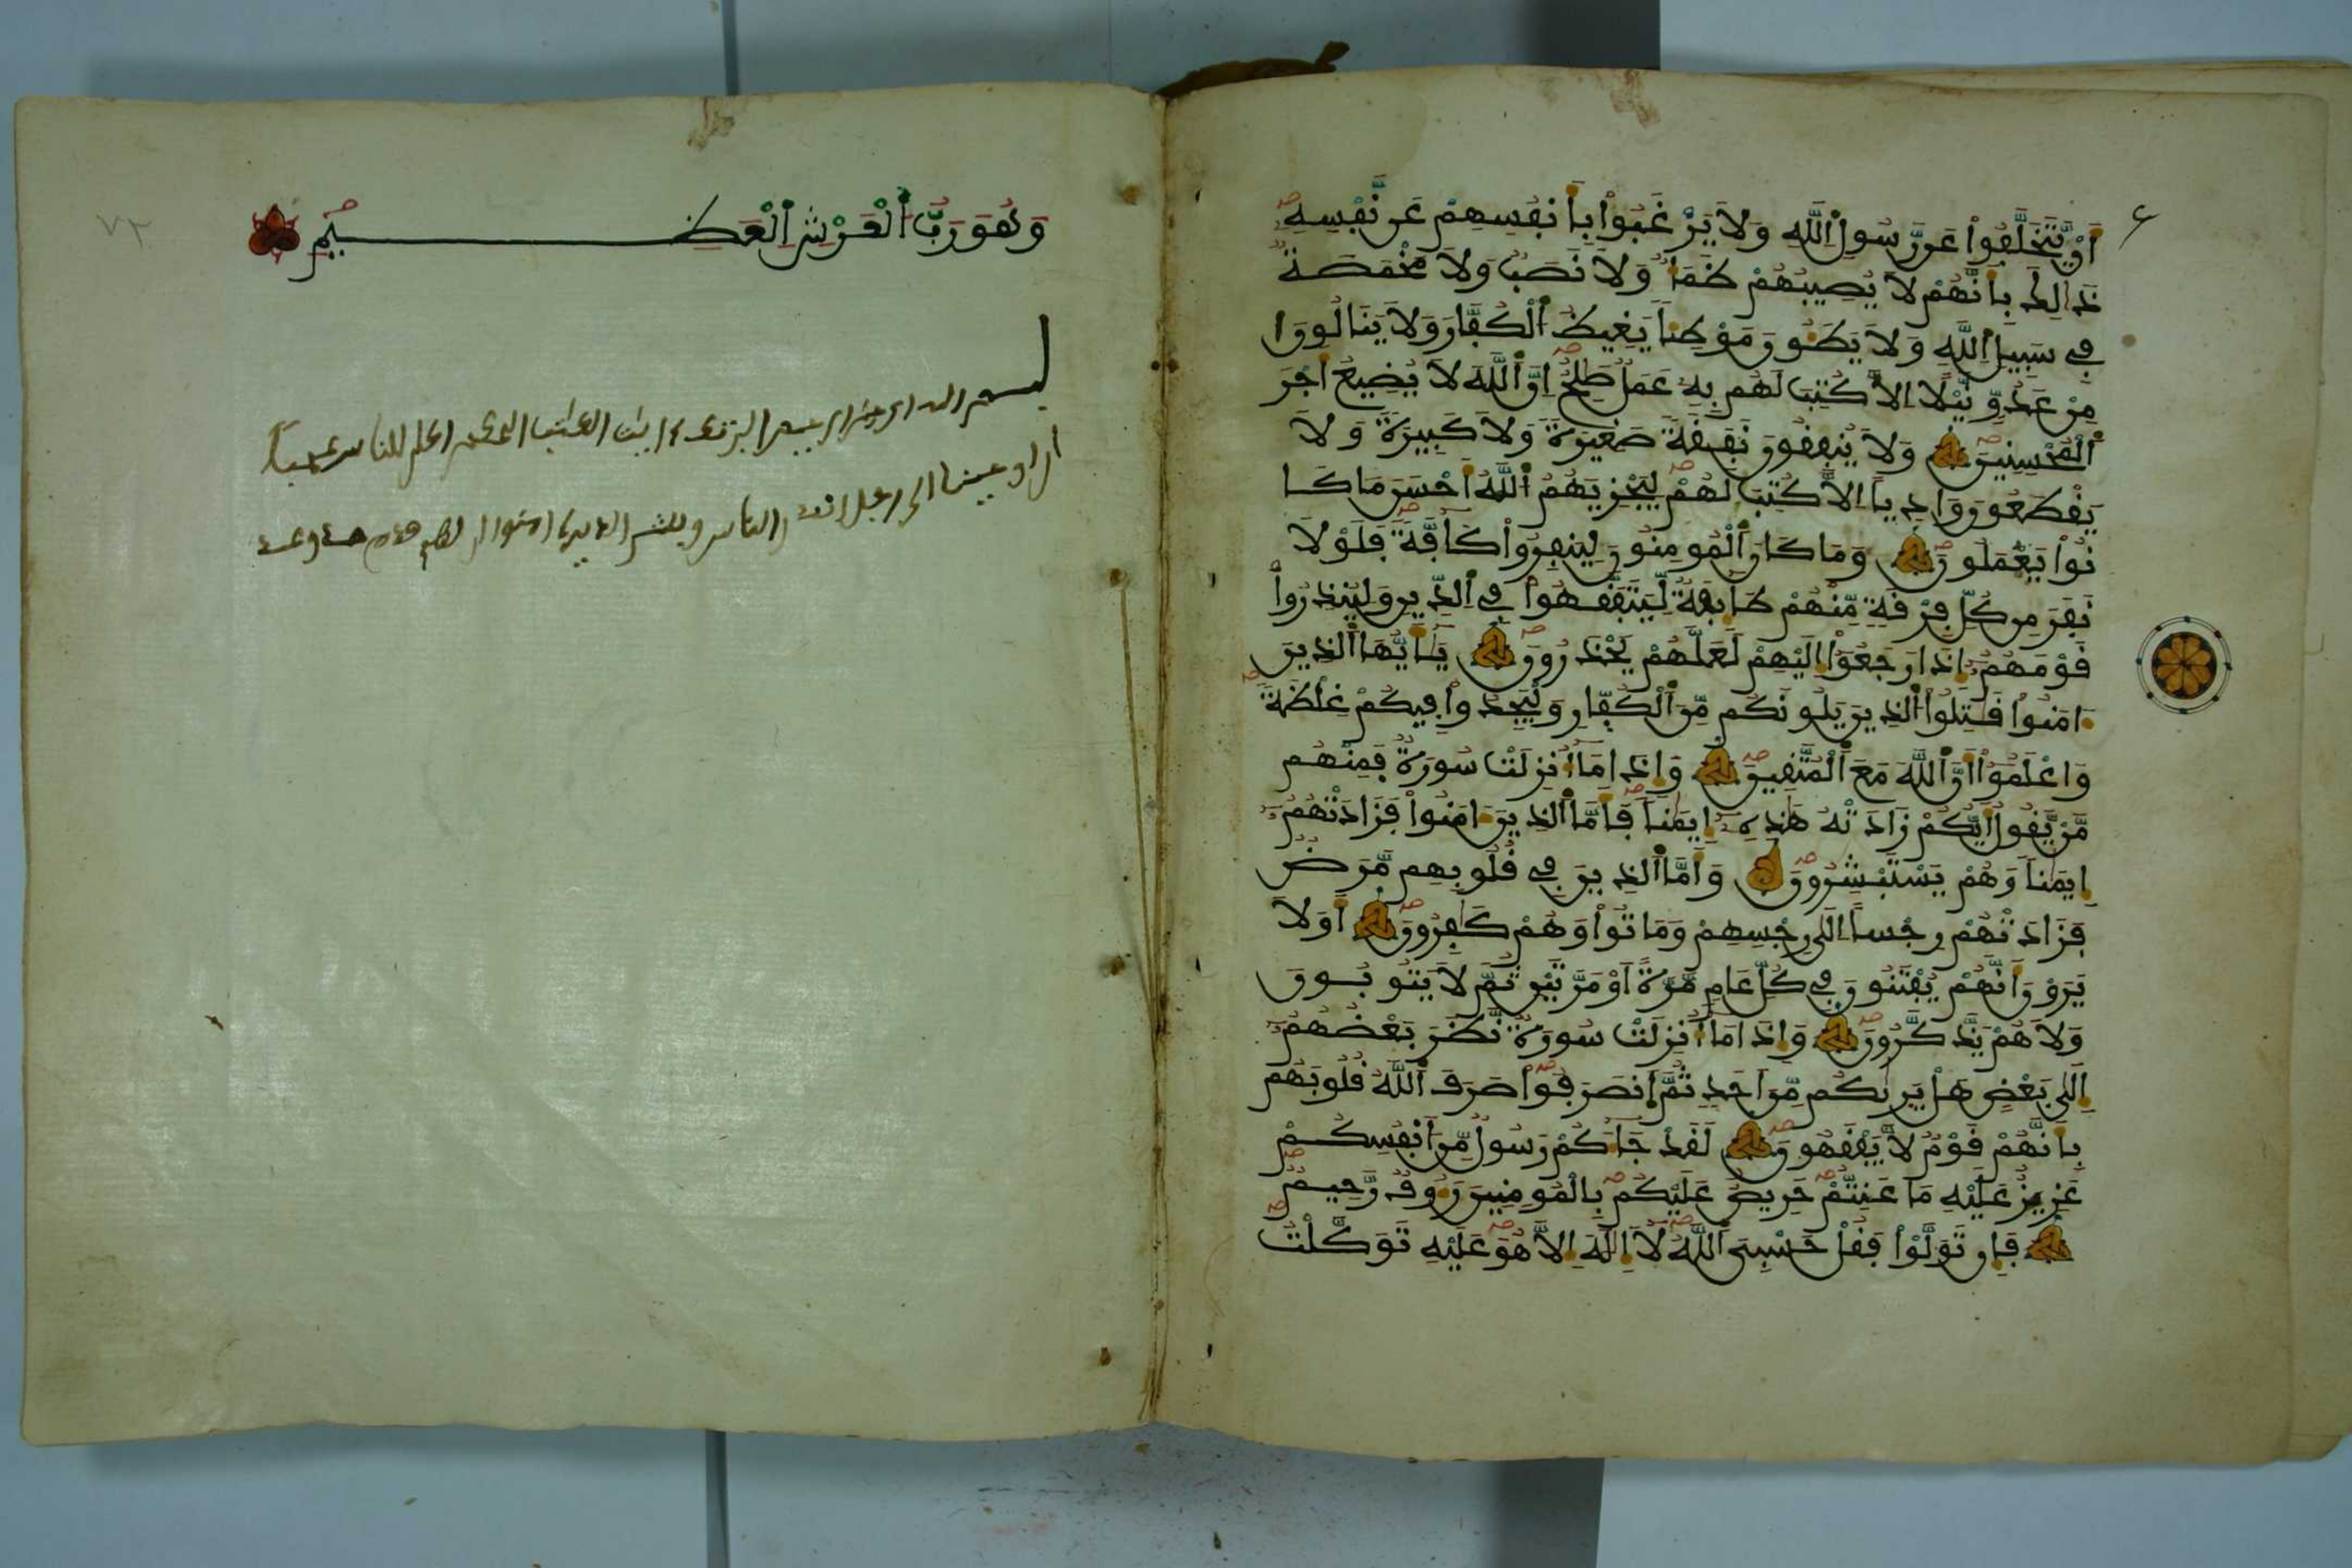 أَنْ يَّتَخَلَّفُوا۟ عَن رَّسُولِ اِ۬للَّهِ وَلَا يَرْغَبُوا۟ بِأَنفُسِهِمْ عَن نَّفْسِهِۦ
ذَٰلِكَ بِأَنَّهُمْ لَا يُصِيبُهُمْ ظَمَأٌ وَلَا نَصَبٌ وَلَا مَخْمَصَةٌ
فِى سَبِيلِ اِ۬للَّهِ وَلَا يَطَـُٔونَ مَوْطِئاً يَغِيظُ اُ۬لْكُفَّارَ وَلَا يَنَالُونَ
مِنْ عَدُوٍّ نَّيْلًا اِلَّا كُتِبَ لَهُم بِهِۦ عَمَلٌ صَٰلِحٌ اِنَّ اَ۬للَّهَ لَا يُضِيعُ أَجْرَ
اَ۬لْمُحْسِنِينَ وَلَا يُنفِقُونَ نَفَقَةً صَغِيرَةً وَلَا كَبِيرَةً وَلَا
يَقْطَعُونَ وَادِياً اِلَّا كُتِبَ لَهُمْ لِيَجْزِيَهُمُ اُ۬للَّهُ أَحْسَنَ مَا كَا
نُوا۟ يَعْمَلُونَ وَمَا كَانَ اَ۬لْمُومِنُونَ لِيَنفِرُوا۟ كَآفَّةً فَلَوْلَا
نَفَرَ مِن كُلِّ فِرْقَةٍ مِّنْهُمْ طَآئِفَةٌ لِّيَتَفَقَّهُوا۟ فِى اِ۬لدِّينِ وَلِيُنذِرُوا۟
قَوْمَهُمُۥٓ إِذَا رَجَعُوٓا۟ إِلَيْهِمْ لَعَلَّهُمْ يَحْذَرُونَ يَٰٓأَيُّهَا اَ۬لذِينَ
ءَامَنُوا۟ قَٰتِلُوا۟ اُ۬لذِينَ يَلُونَكُم مِّنَ اَ۬لْكُفّ۪ارِ وَلْيَجِدُوا۟ فِيكُمْ غِلْظَةً
وَاعْلَمُوٓا۟ أَنَّ اَ۬للَّهَ مَعَ اَ۬لْمُتَّقِينَ وَإِذَا مَآ أُنزِلَتْ سُورَةٌ فَمِنْهُم
مَّنْ يَّقُولُ أَيُّكُمْ زَادَتْهُ هَٰذِهِۦٓ إِيمَٰناً فَأَمَّا اَ۬لذِينَ ءَامَنُوا۟ فَزَادَتْهُمُۥٓ
إِيمَٰناً وَهُمْ يَسْتَبْشِرُونَ وَأَمَّا اَ۬لذِينَ فِى قُلُوبِهِم مَّرَضٌ
فَزَادَتْهُمْ رِجْساً اِلَىٰ رِجْسِهِمْ وَمَاتُوا۟ وَهُمْ كَٰفِرُونَ أَوَلَا
يَرَوْنَ أَنَّهُمْ يُفْتَنُونَ فِى كُلِّ عَامٍ مَّرَّةً اَوْ مَرَّتَيْنِ ثُمَّ لَا يَتُوبُونَ
وَلَا هُمْ يَذَّكَّرُونَ وَإِذَا مَآ أُنزِلَتْ سُورَةٌ نَّظَرَ بَعْضُهُمُۥٓ
إِلَىٰ بَعْضٍ هَلْ يَر۪ىٰكُم مِّنَ اَحَدٍ ثُمَّ اَ۪نصَرَفُوا۟ صَرَفَ اَ۬للَّهُ قُلُوبَهُم
بِأَنَّهُمْ قَوْمٌ لَّا يَفْقَهُونَ لَقَدْ جَآءَكُمْ رَسُولٌ مِّنَ اَنفُسِكُمْ
عَزِيزٌ عَلَيْهِ مَا عَنِتُّمْ حَرِيصٌ عَلَيْكُم بِالْمُومِنِينَ رَءُوفٌ رَّحِيمٌ
فَإِن تَوَلَّوْا۟ فَقُلْ حَسْبِىَ اَ۬للَّهُ لَآ إِلَٰهَ إِلَّا هُوَ عَلَيْهِ تَوَكَّلْتُ
وَهُوَ رَبُّ اُ۬لْعَرْشِ اِ۬لْعَظِيمِ
بسم الله الرحمن الرحيم الر تلك ءايت الكتب الحكيم اكان للناس عجباً
ان اوحينا الى رجل
الناس وبشر الذين ءامنوا ان لهم قدم
٧٢